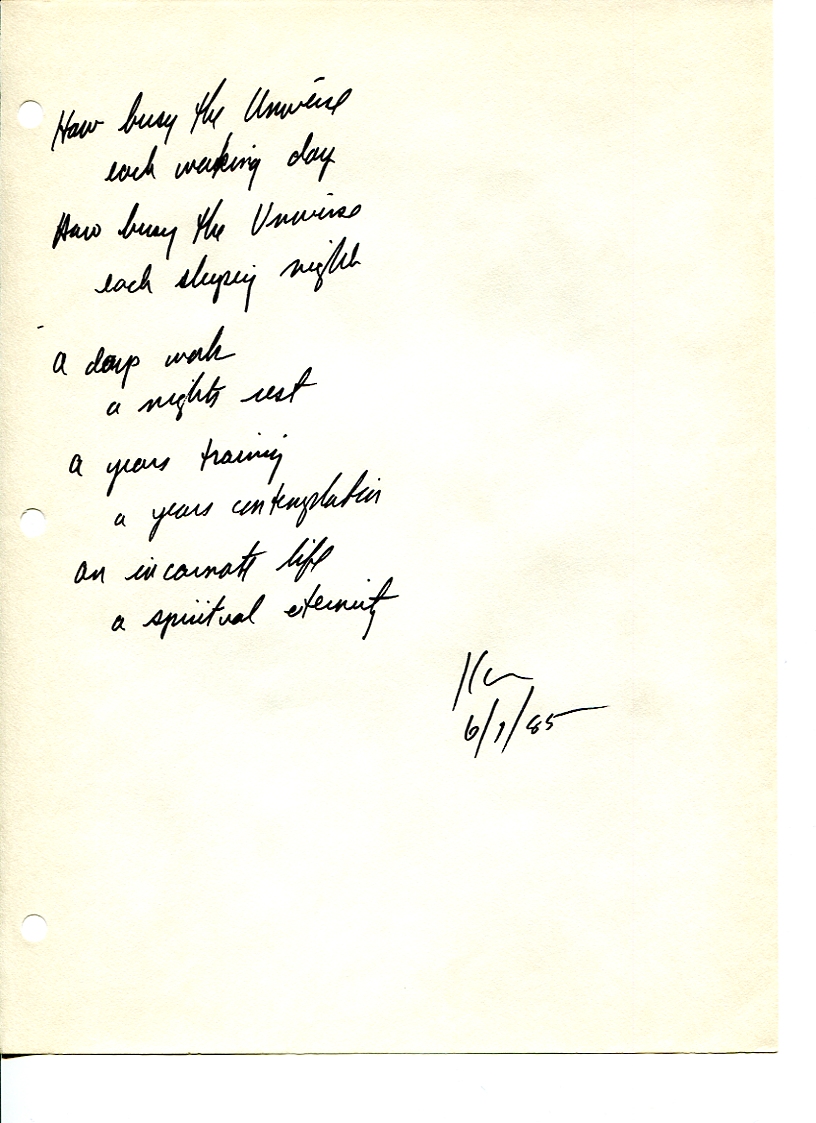 How busy the Universe
each waking day
How busy the Universe
each sleeping night
a days work
a nights rest
a years training
a years contemplation
an incarnate life
a spiritual eternity
Ken
6/7/85